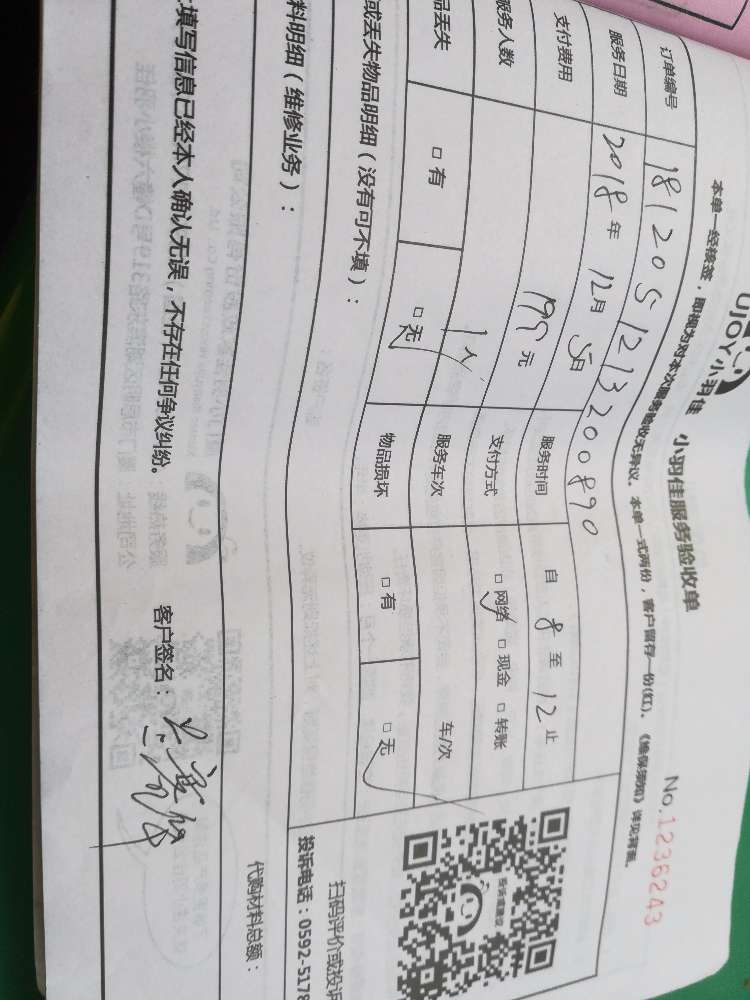 UJOY小羽佳 小羽佳服务验收单
No.1236243
本单一经核签，即视为对本次服务验收无异议。本单一式两份，客户留存一份(红)。《维保须知》详见背面。
订单编号 181205121320 0890
服务日期 2018年12月5日 服务时间 自8至12止
支付费用 195元 支付方式 □网络 □现金 □转账
服务人数 1人 服务车次 车/次
品丢失 □有 □无 物品损坏 □有 □无
或丢失物品明细（没有可不填）：
扫码评价或投诉
投诉电话：0592-5178
料明细（维修业务）：
代购材料总额：
填写信息已经本人确认无误，不存在任何争议纠纷。 客户签名：